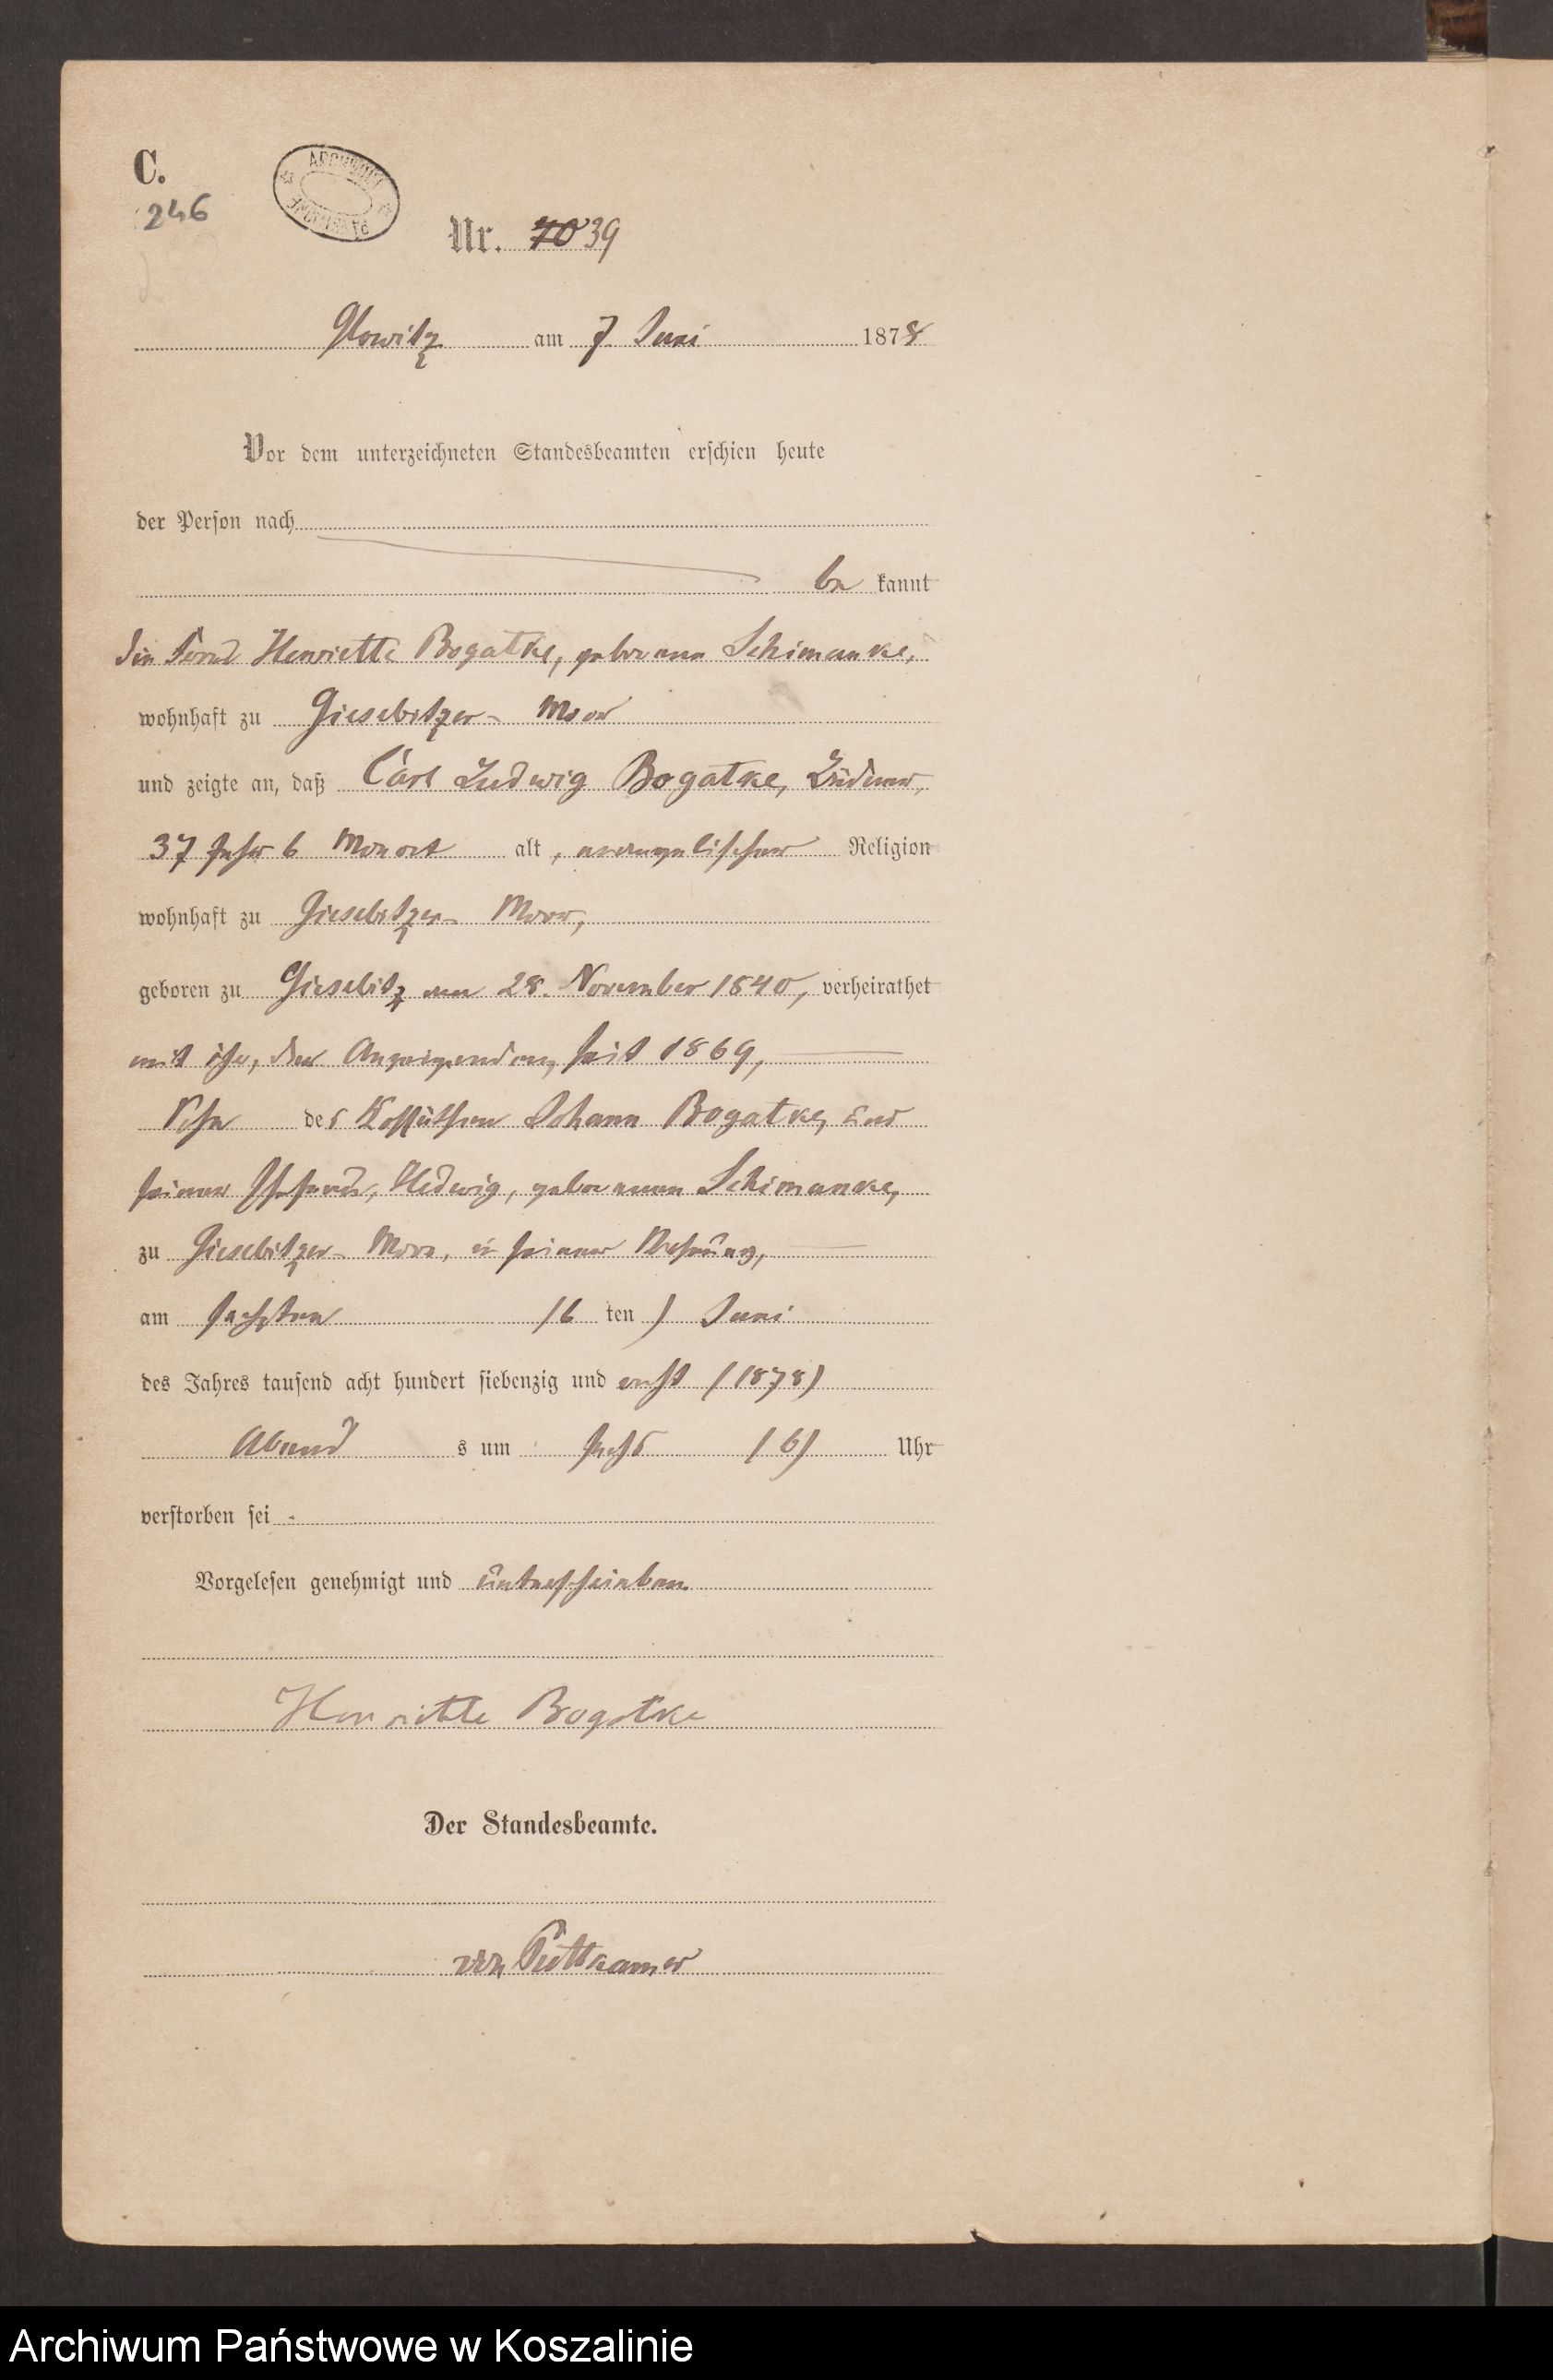 C.
246
ARCHIWUM PAŃSTWOWE
Nr. 40 39
Glowitz am 7 Juni 1878
Vor dem unterzeichneten Standesbeamten erschien heute
der Person nach
be kannt
die Frau Henriette Bogatke, geborenen Schimanke,
wohnhaft zu Giesebitzer- Moor
und zeigte an, daß Carl Ludwig Bogatke,
37 Jahr 6 Monat alt, evangelischer Religion
wohnhaft zu Giesebitzer- Moor,
geboren zu Giesebitz am 28. November 1840, verheirathet
mit ihr, der Anzeigenden, seit 1869,
Sohn des Kossäthen Johann Bogatke, und
seiner Ehefrau, Hedwig, geborenen Schimanke,
zu Giesebitzer- Moor, in seiner Wohnung,
am sechsten (6 ten) Juni
des Jahres tausend acht hundert siebenzig und acht (1878)
Abend s um sechs (6) Uhr
verstorben sei -
Vorgelesen genehmigt und unterschrieben.
Henriette Bogatke
Der Standesbeamte.
von Puttkamer
Archiwum Państwowe w Koszalinie